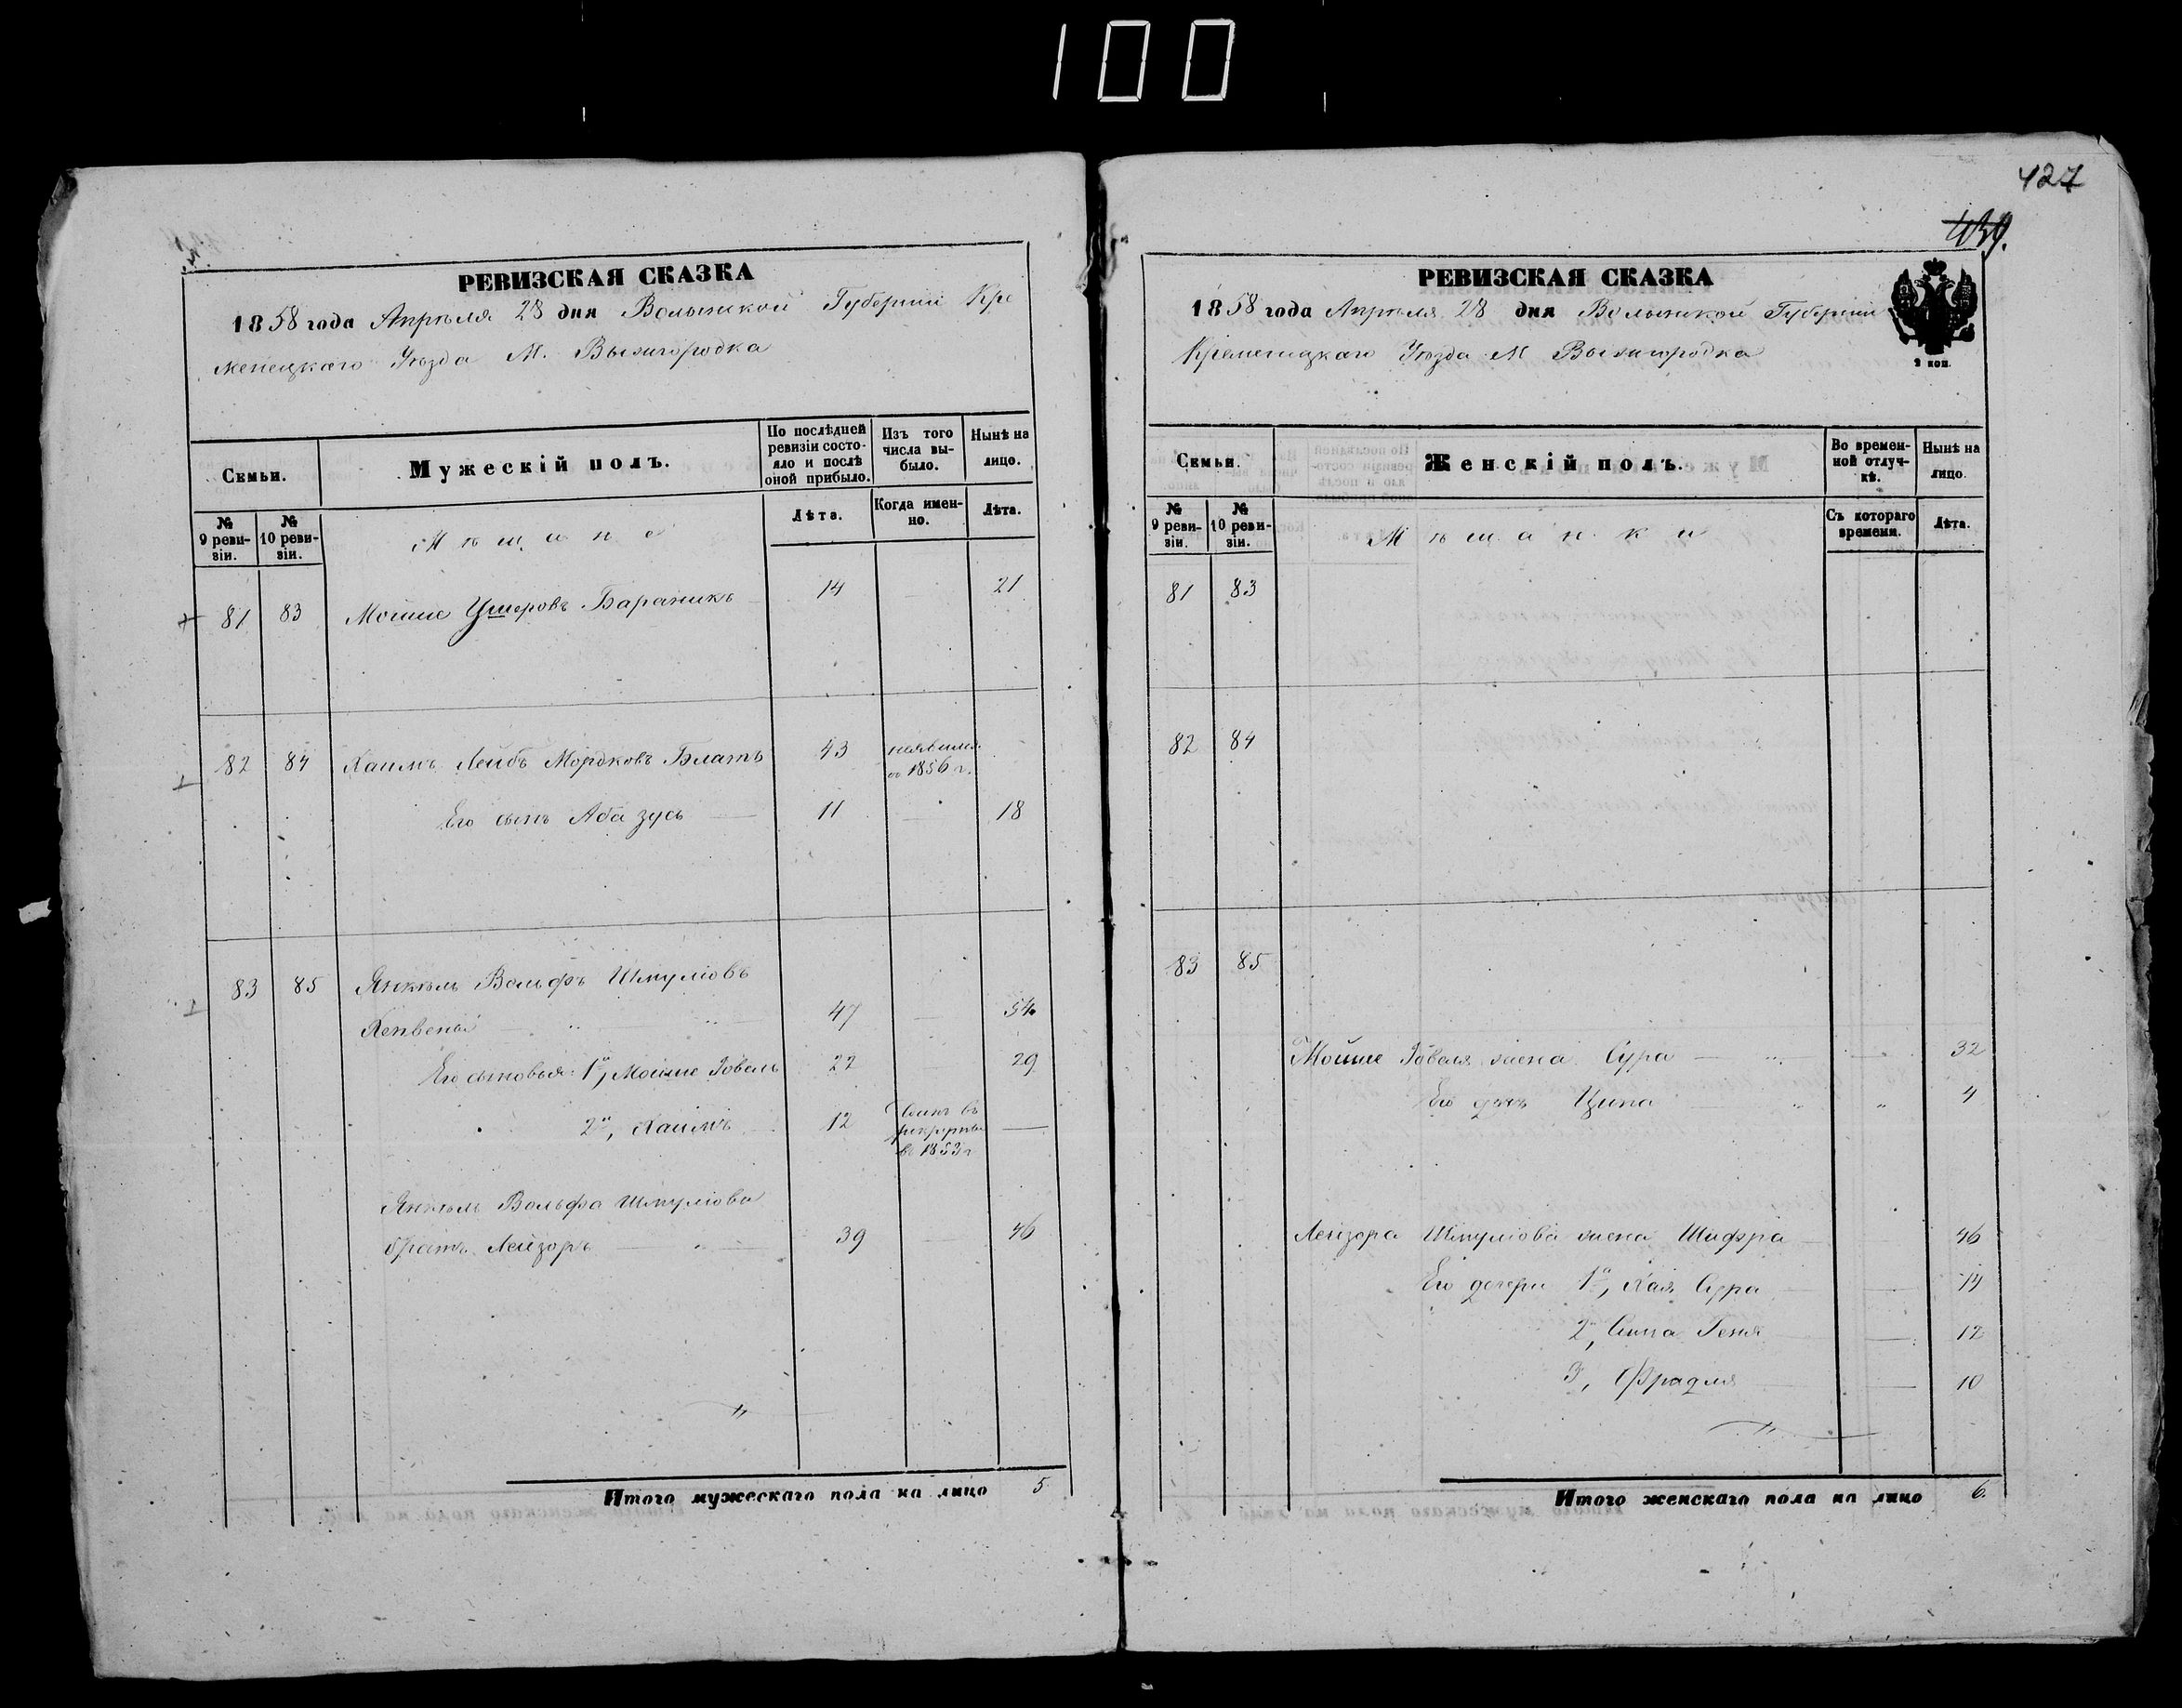 100
427
439.
РЕВИЗСКАЯ СКАЗКА
1858 года Апрѣля 28 дня Волынской Губерніи Кре
менецкаго Уѣзда М. Вышгородка
Семьи.
Мужескій полъ.
По послѣдней ревизіи состояло и послѣ оной прибыло.
Изъ того числа выбыло.
Нынѣ на лицо.
№ 9 ревизіи.
№ 10 ревизіи.
Мѣщане
Лѣта.
Когда именно.
Лѣта.
81 83 Мошше Ушеровъ Бараникъ 14 — 21
82 84 Хаимъ Лейбъ Мордковъ Блатъ 43 неявился въ 1856 г.
Его сынъ Аба Зусь — 11 — 18
83 85 Янкель Вольфъ Шмуліовъ
47 — 54
Его сыновья 1й, Мошше Іовель 22 29
2й, Хаимъ 12 въ рекруты въ 1853 г —
Янкель Вольфа Шмуліова
братъ Лейзоръ " — 39 — 46
Итого мужескаго пола на лицо 5
РЕВИЗСКАЯ СКАЗКА
1858 года Апрѣля 28 дня Волынской Губерніи
Кременецкаго Уѣзда М Вышгородка
2 коп.
Семьи.
Женскій полъ.
Во временной отлучкѣ.
Нынѣ на лицо.
№ 9 ревизіи.
№ 10 ревизіи.
Мѣщанки
Съ котораго времени.
Лѣта.
81 83
82 84
83 85
Мойше Іовеля жена Сура — " — 32
Его дочь Ципа — " " 4
Лейзора Шмуліова жена Шифра — 46
Его дочери 1я, Хая Сура — — 14
2, Геня — — 12
3, Фрадля — — 10
Итого женскаго пола на лицо 6.